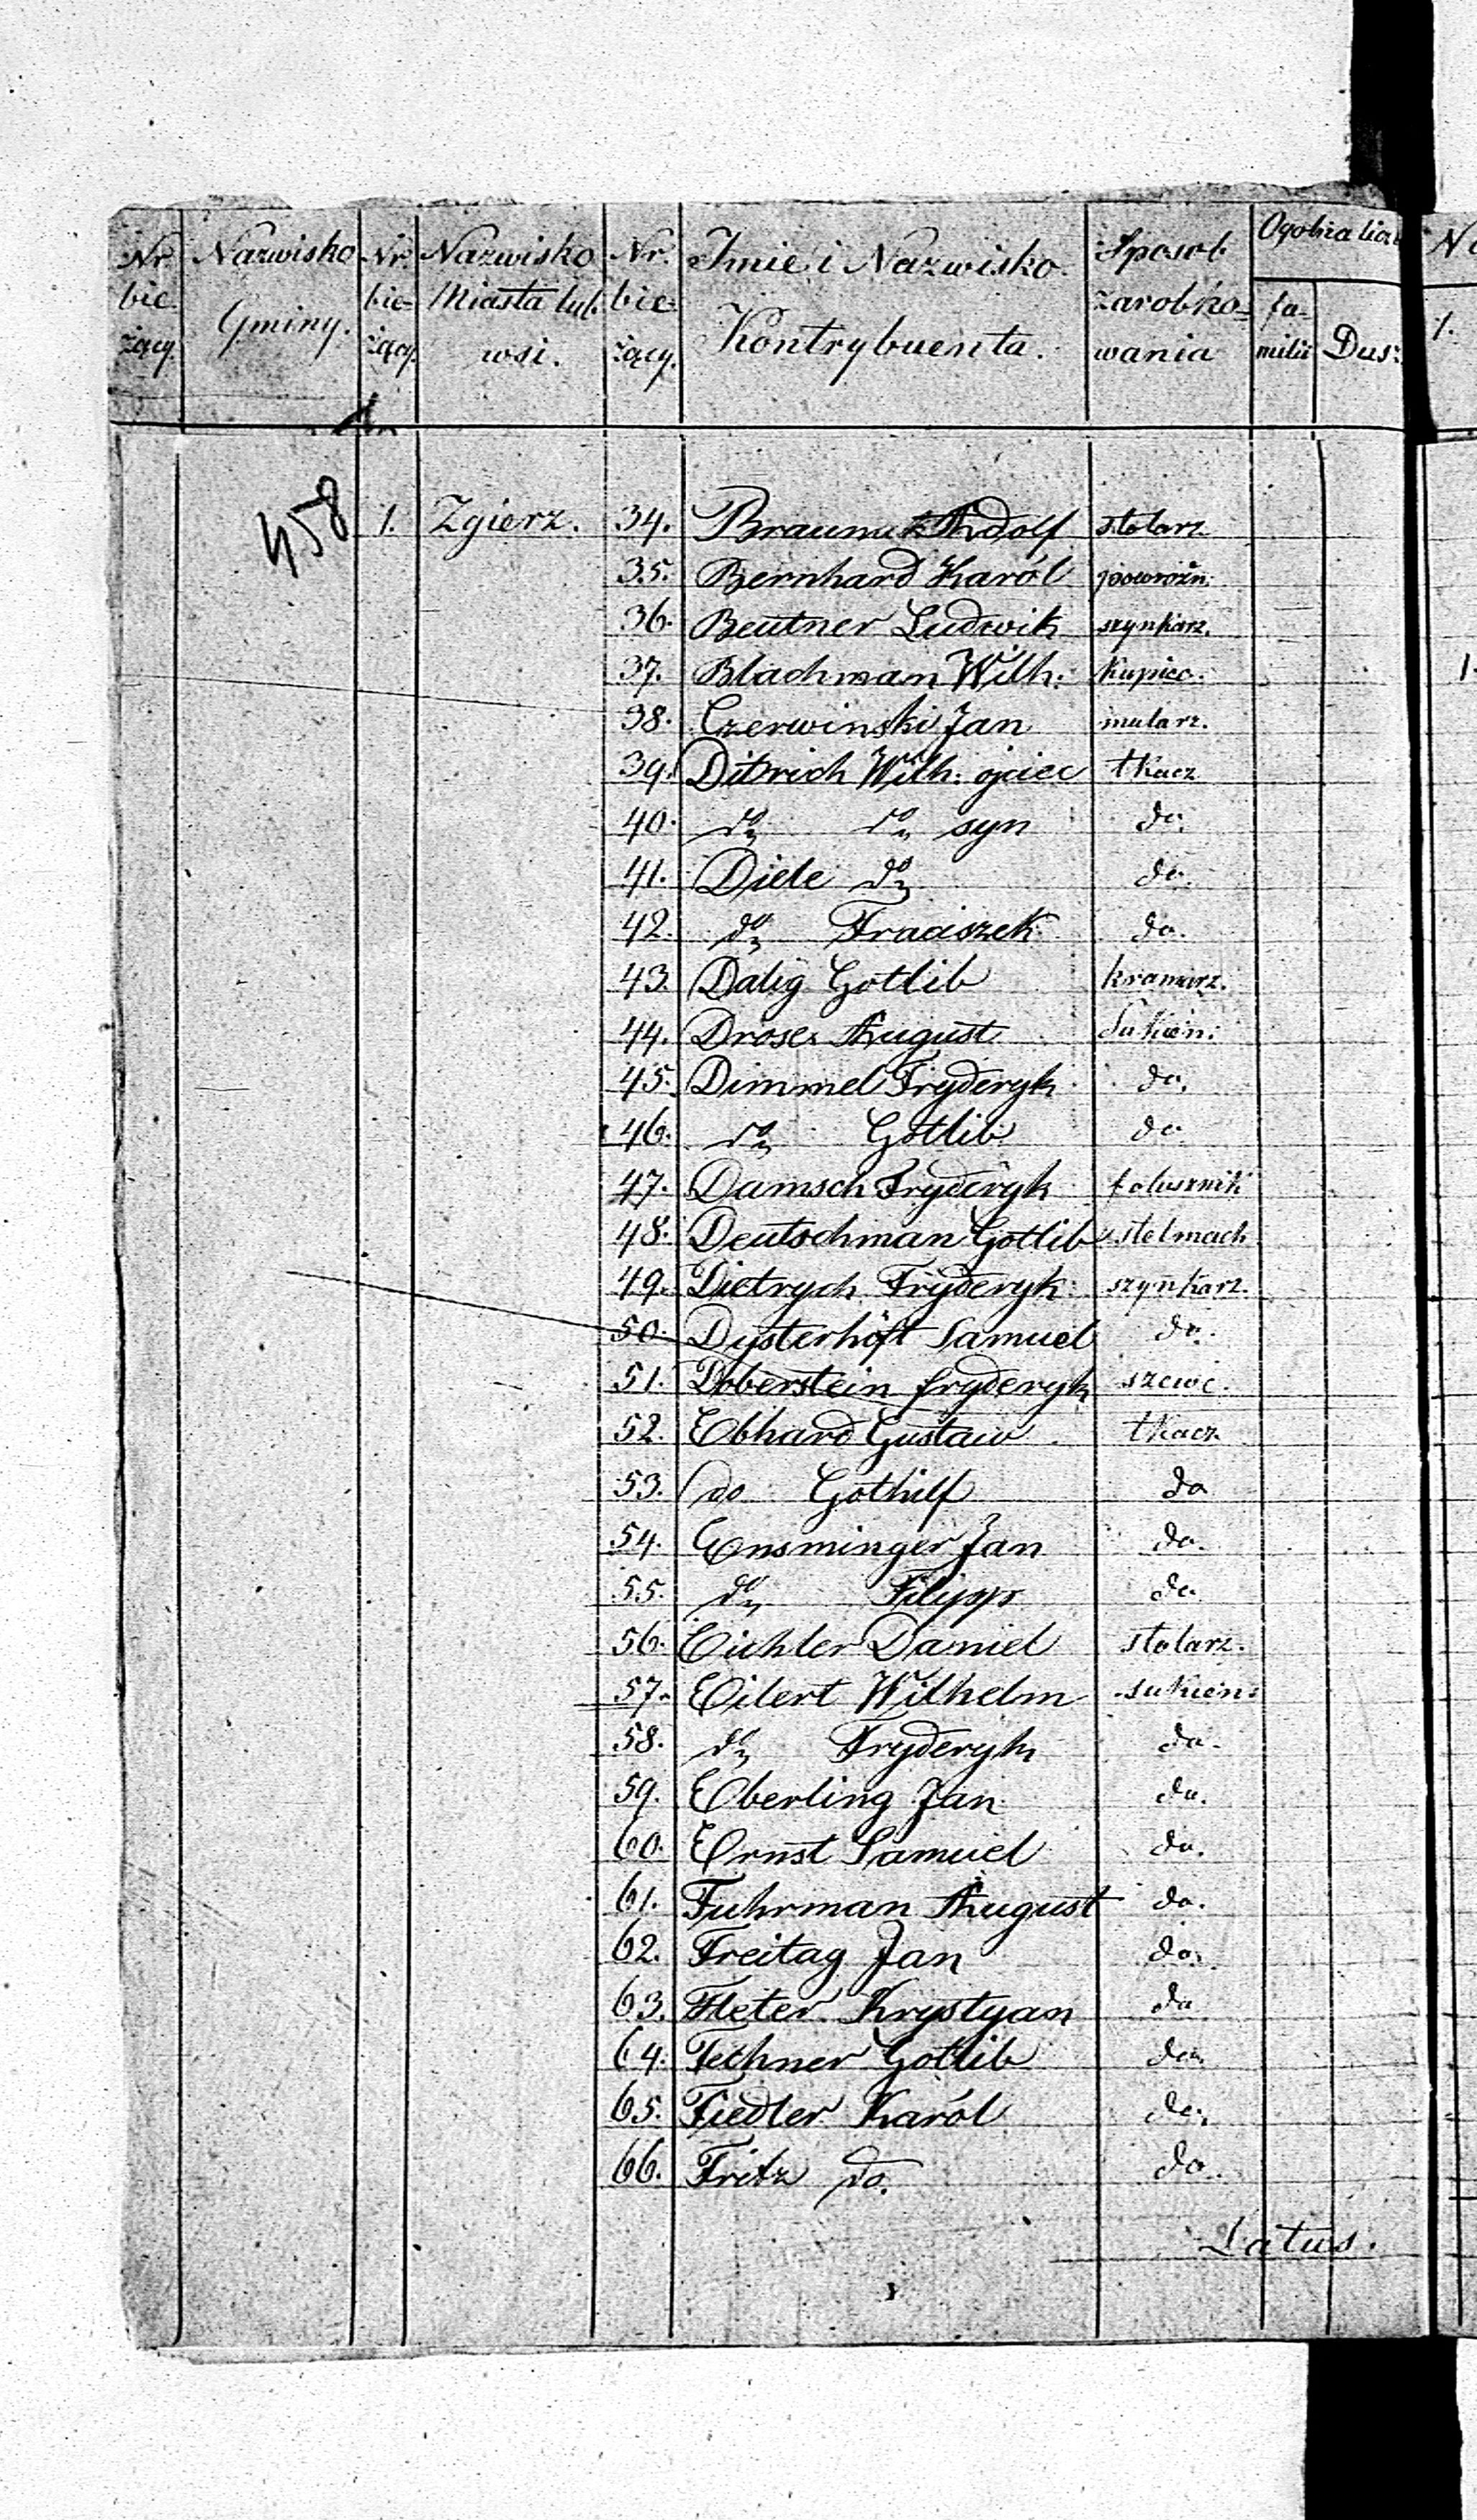 Nr. bieżący. Nazwisko Gminy. Nr. bieżący. Nazwisko Miasta lub wsi. Nr. bieżący. Imie i Nazwisko Kontrybuenta. Sposob zarobkowania Ogolna licz familii Dusz
458
1. Zgierz. 34. Adolf stolarz
35. Bernhard Karól powroźn:
36. Beutner Ludwik szynkarz.
37. Blachman Wilh: kupiec.
38. Czerwinski Jan mularz.
39. Ditrich Wilh: ojciec tkacz
40. do do syn do.
41. Diele do do.
42. do Fraciszek do.
43. Dalig Gotlib kramarz.
44. Droses August Sukien:
45. Dimmel Fryderyk do.
46. do Gotlib do
47. Damsch Fryderyk folusznik
48. Deutschman Gotlib stelmach
49. Dietrych Fryderyk szynkarz.
50. Dysterhöft Samuel do.
51. Doberstein fryderyk szewc.
52. Ebhard Gustaw tkacz
53. do Gothilf do
54. Ensminger Jan do.
55. do Filipp do
56. Eichler Daniel stolarz.
57. Eilert Wilhelm sukien:
58. do Fryderyk do.
59. Eberling Jan do.
60. Ernst Samuel do.
61. Fuhrman August do.
62. Freitag Jan do.
63. Fleter Krystyan do
64. Fechner Gotlib do.
65. Fiedler Karól do.
66. Fritz do. do.
Latus.